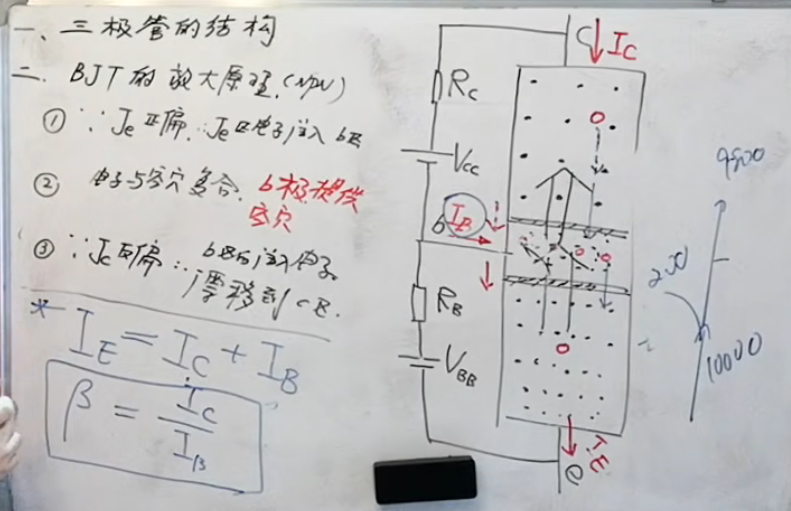 一、三极管的结构
二、BJT的放大原理.(NPN)
① ∵Je正偏.∴Je区电子注入b区
② 电子与空穴复合.b极提供
空穴
③ ∵Jc反偏∴b区的注入电子
漂移到c区.
* IE = IC + IB
β = IC/IB
C IC
RC
VCC
b IB
RB
VBB
e IE
9800
200
10000